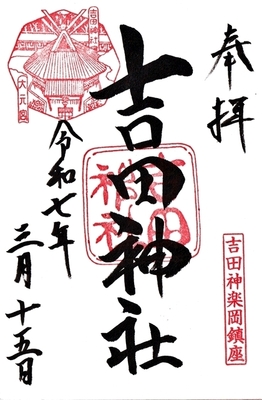 奉拝
吉田神楽岡鎮座
吉田神社
吉田神社
吉田神社
大元宮
令和七年
三月十五日